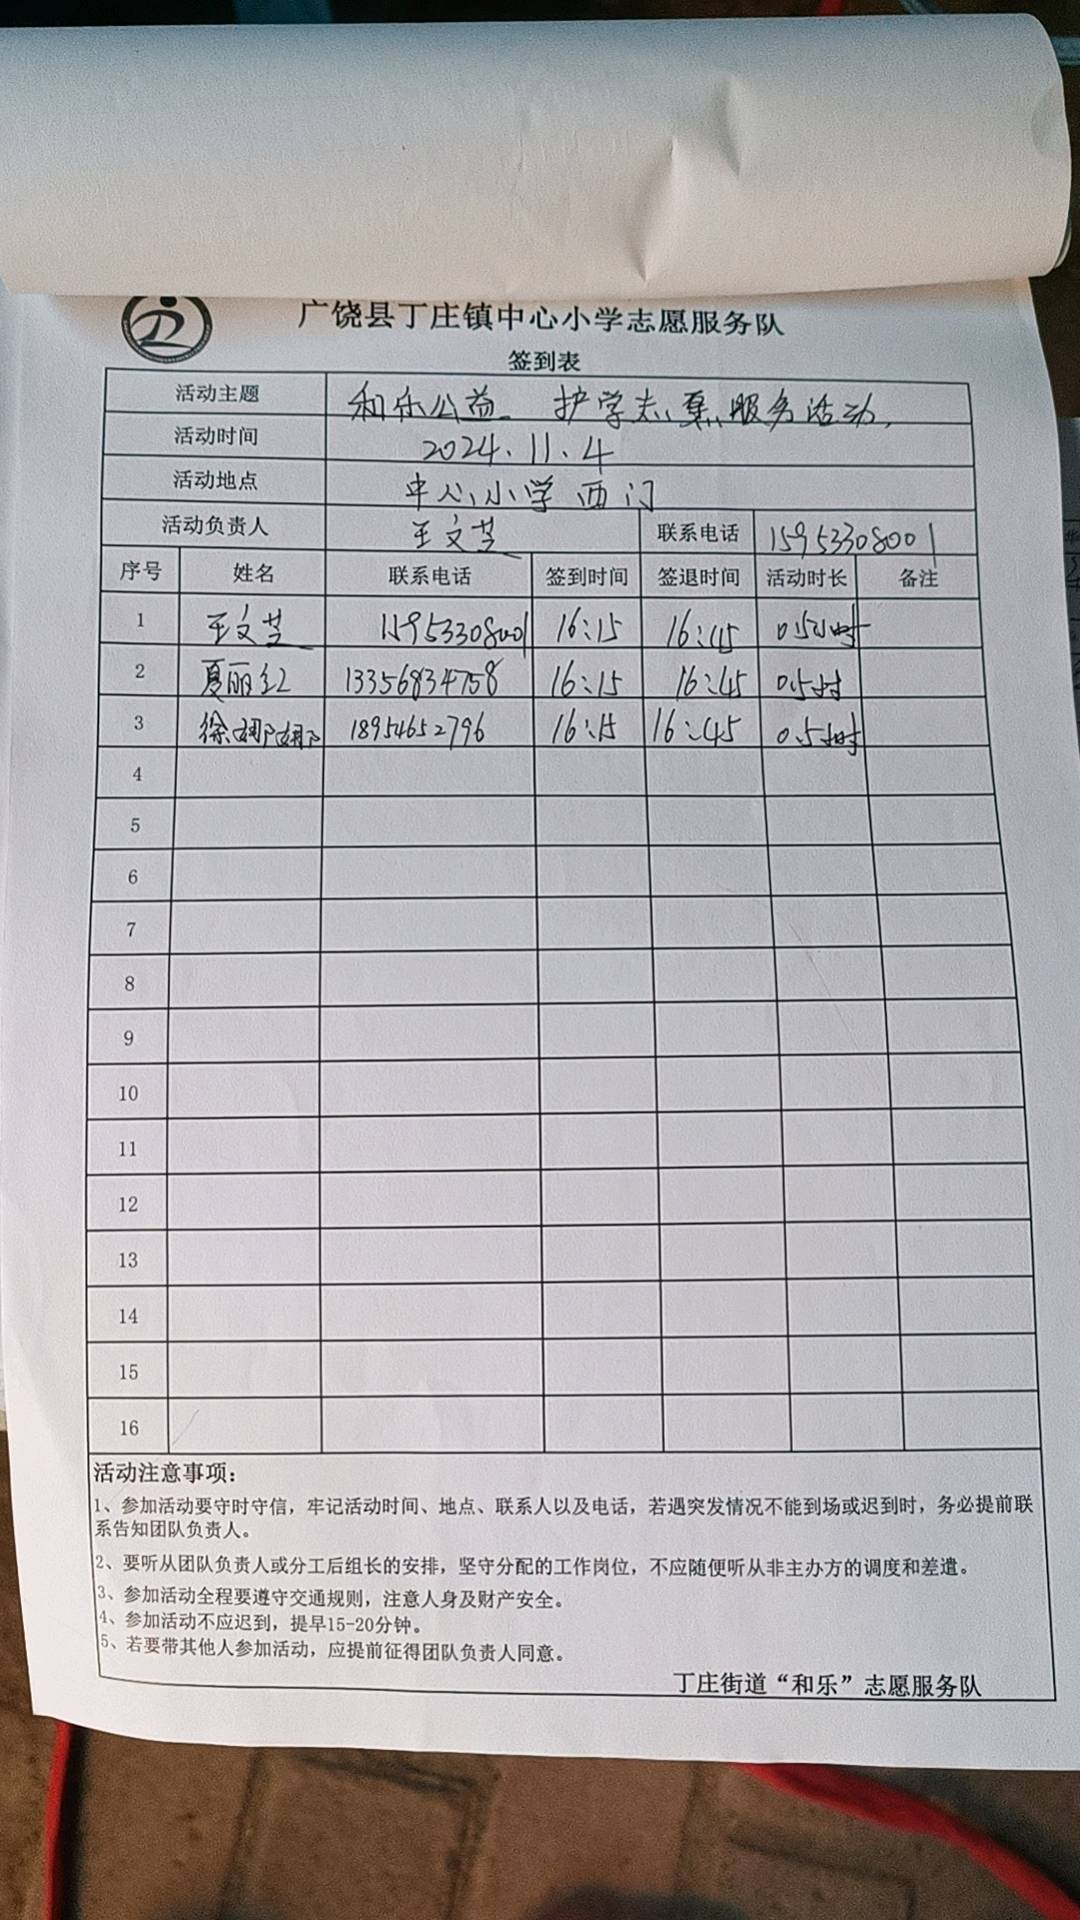 广饶县丁庄镇中心小学志愿服务队
签到表
活动主题 和乐公益 护学志愿服务活动
活动时间 2024.11.4
活动地点 中心小学西门
活动负责人 王文芝 联系电话 15953308001
序号 姓名 联系电话 签到时间 签退时间 活动时长 备注
1 王文芝 15953308001 16:15 16:45 0.5小时
2 夏丽红 13356834758 16:15 16:45 0.5小时
3 徐娜娜 18954652796 16:15 16:45 0.5小时
4
5
6
7
8
9
10
11
12
13
14
15
16
活动注意事项：
1、参加活动要守时守信，牢记活动时间、地点、联系人以及电话，若遇突发情况不能到场或迟到时，务必提前联
系告知团队负责人。
2、要听从团队负责人或分工后组长的安排，坚守分配的工作岗位，不应随便听从非主办方的调度和差遣。
3、参加活动全程要遵守交通规则，注意人身及财产安全。
4、参加活动不应迟到，提早15-20分钟。
5、若要带其他人参加活动，应提前征得团队负责人同意。
丁庄街道“和乐”志愿服务队